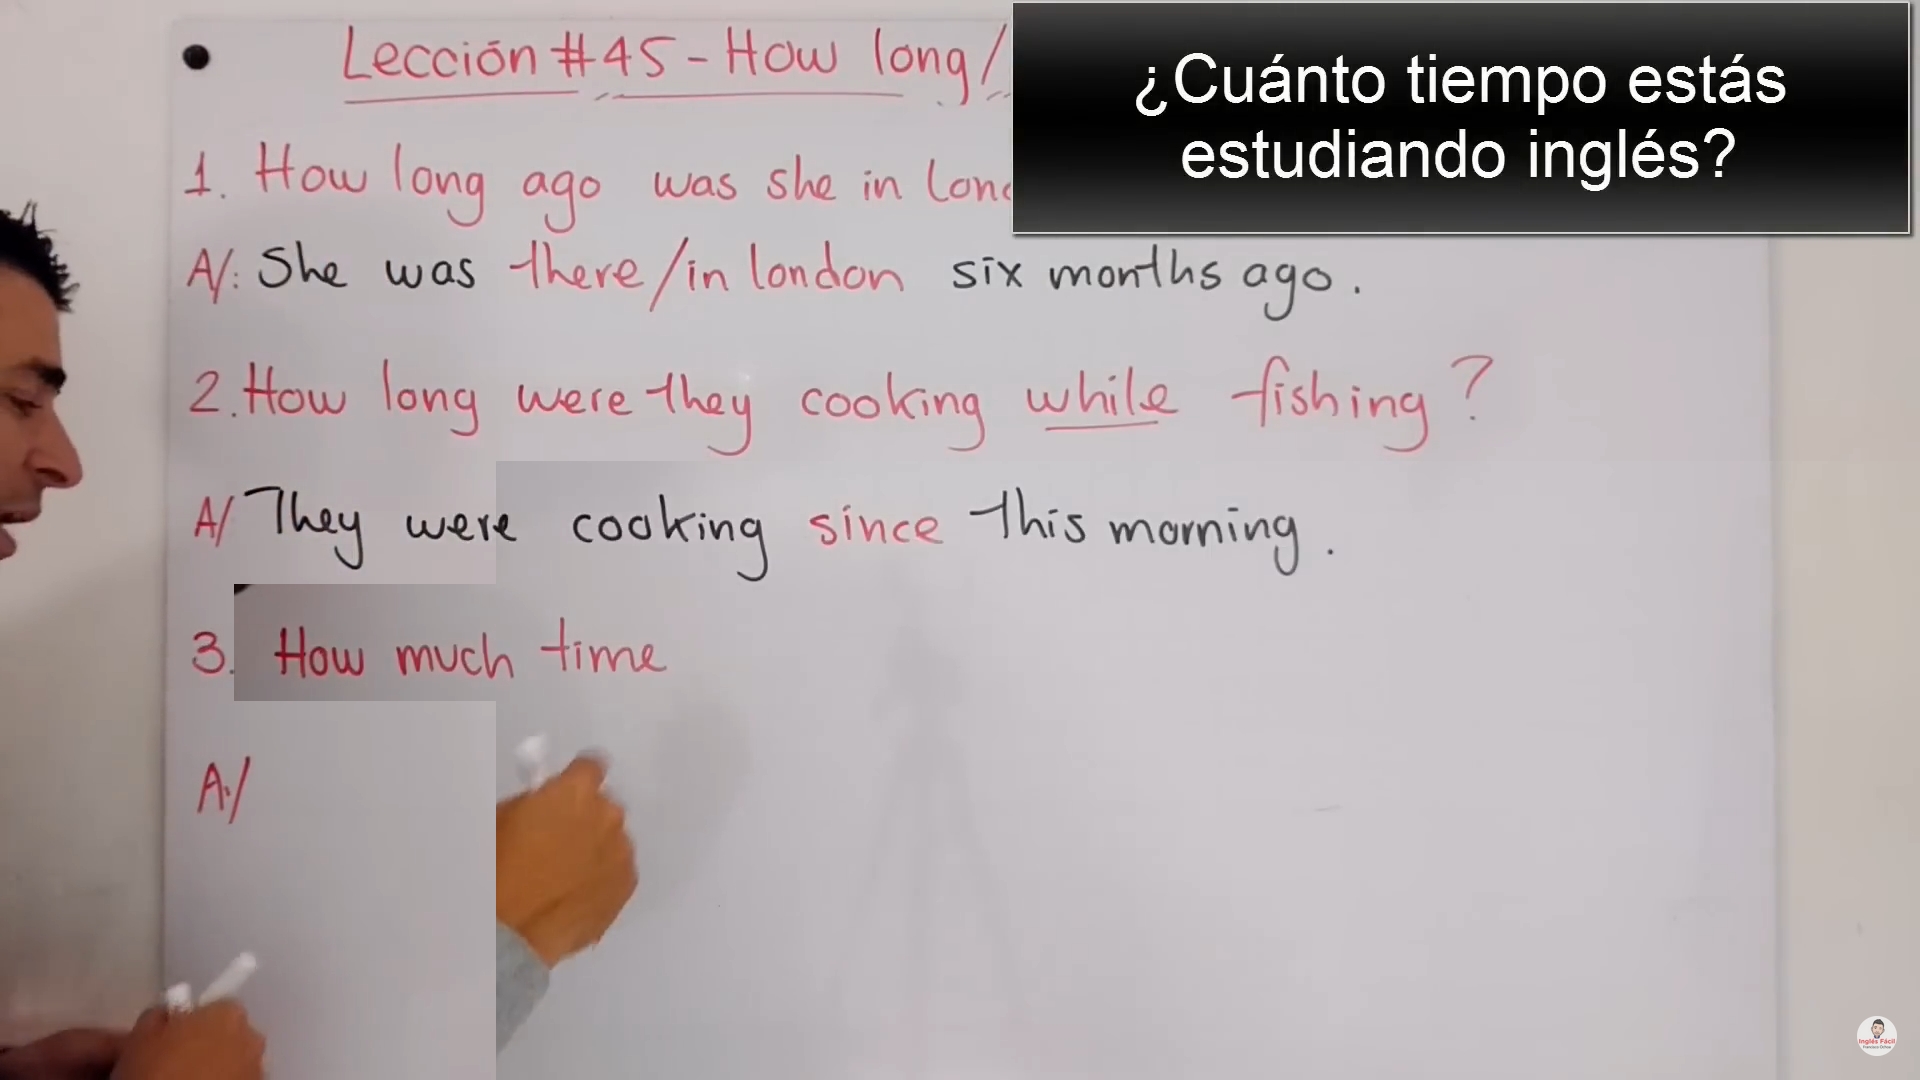 Lección #45 - How long/
¿Cuánto tiempo estás
estudiando inglés?
1. How long ago was she in
A/: She was there/in london six months ago.
2. How long were they cooking while fishing?
A/ They were cooking since this morning.
3. How much time
A/
Inglés Fácil